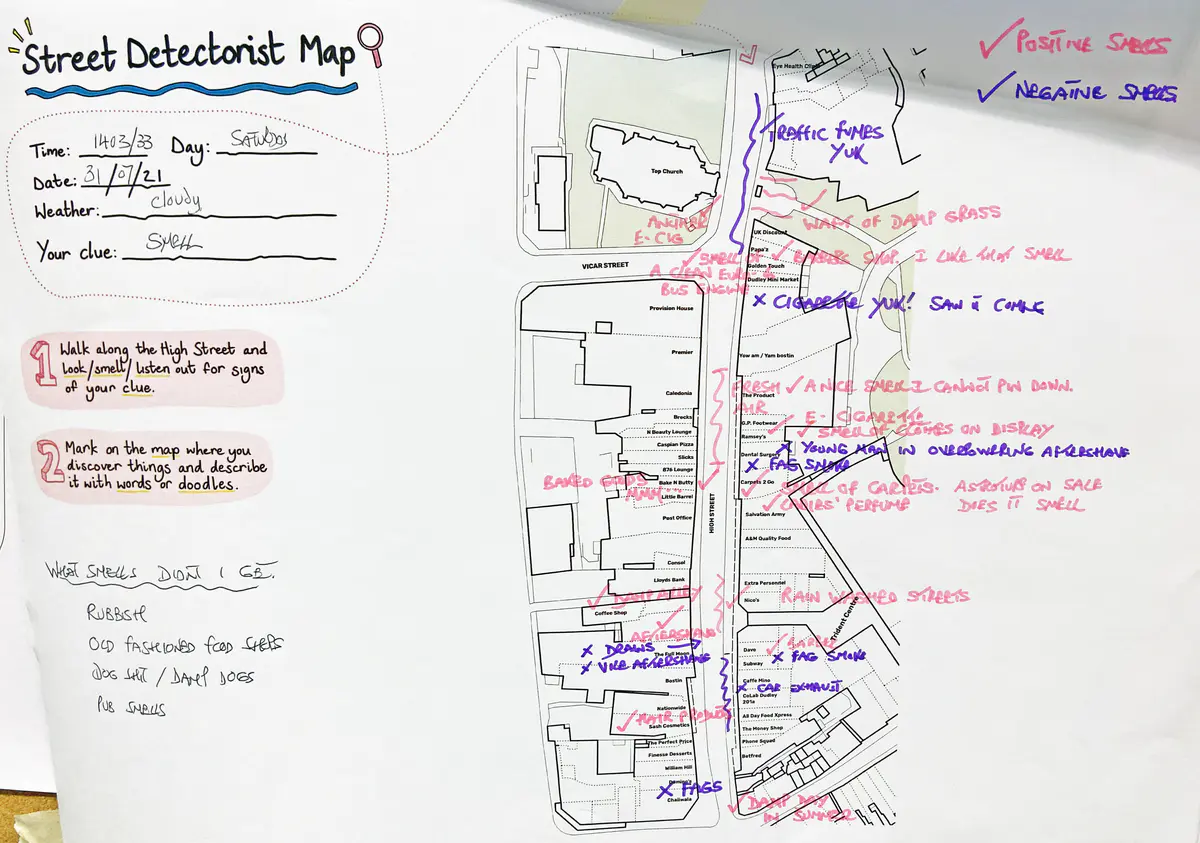 Street Detectorist Map
Time: 1403/33 Day:
Date: 31/07/21
Weather: cloudy
Your clue: SMELL
1 Walk along the High Street and
look/smell/listen out for signs
of your clue.
2 Mark on the map where you
discover things and describe
it with words or doodles.
WHAT SMELLS DIDN'T I GET.
RUBBISH
OLD FASHIONED FOOD SHOPS
DOG SHIT / DAMP DOGS
PUB SMELLS
✓ POSITIVE SMELLS
✓ NEGATIVE SMELLS
Eye Health Clinic
TRAFFIC FUMES
YUK
Top Church
WAFT OF DAMP GRASS
ANOTHER
E-CIG
UK Discount
Papa's
✓ SMELL OF
A CLEAN EURO 6
BUS ENGINE
✓ BARBER SHOP. I LIKE THAT SMELL
Golden Touch
Dudley Mini Market
VICAR STREET
X CIGARETTE YUK! SAW IT COMING
Provision House
Premier
Yow am / Yam bostin
Caledonia
FRESH
AIR
✓ A NICE SMELL I CANNOT PIN DOWN.
The Product
Brocks
G.P. Footwear
✓ E-CIGARETTE
N Beauty Lounge
Ramsey's
✓ SMELL OF CLOTHES ON DISPLAY
Caspian Pizza
Slicks
Dental Surgery
X YOUNG MAN IN OVERPOWERING AFTERSHAVE
X FAG SMOKE
B76 Lounge
Bake N Butty
Little Barrel
BAKED GOODS ✓
MMM...
Carpets 2 Go
✓ SMELL OF CARPETS. ASTROTURF ON SALE
DOES IT SMELL
✓ LADIES' PERFUME
Post Office
HIGH STREET
Salvation Army
A&M Quality Food
Consol
Lloyds Bank
Extra Personnel
Nico's
✓ DAMP ALLEY
✓ RAIN WASHED STREETS
Coffee Shop
Trident Centre
✓ AFTERSHAVE
X DRAINS
The Full Moon
X VILE AFTERSHAVE
Dave
✓ BARBER
Subway
X FAG SMOKE
Bostin
Caffe Mino
CoLab Dudley
201a
X CAR EXHAUST
Nationwide
Sash Cosmetics
✓ HAIR PRODUCT
All Day Food Xpress
The Money Shop
The Perfect Price
Phone Squad
Finesse Desserts
Betfred
William Hill
Domino's
X FAGS
Chaiiwala
✓ DAMP DAY
IN SUMMER